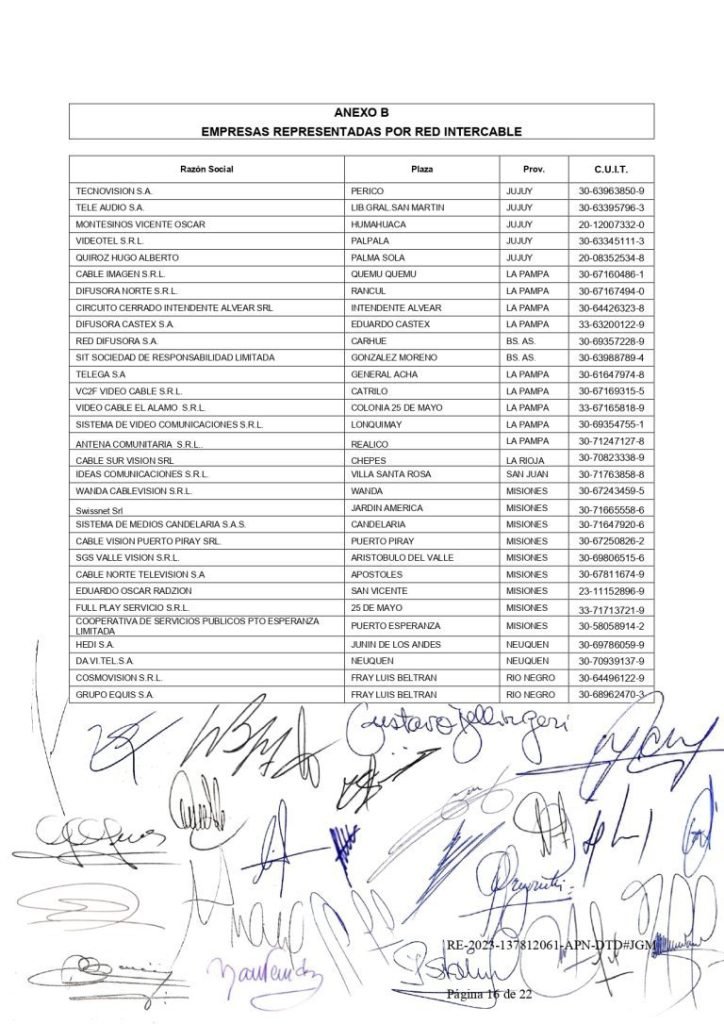 ANEXO B
EMPRESAS REPRESENTADAS POR RED INTERCABLE
Razón Social Plaza Prov. C.U.I.T.
TECNOVISION S.A. PERICO JUJUY 30-63963850-9
TELE AUDIO S.A. LIB.GRAL.SAN MARTIN JUJUY 30-63395796-3
MONTESINOS VICENTE OSCAR HUMAHUACA JUJUY 20-12007332-0
VIDEOTEL S.R.L. PALPALA JUJUY 30-63345111-3
QUIROZ HUGO ALBERTO PALMA SOLA JUJUY 20-08352534-8
CABLE IMAGEN S.R.L. QUEMU QUEMU LA PAMPA 30-67160486-1
DIFUSORA NORTE S.R.L. RANCUL LA PAMPA 30-67167494-0
CIRCUITO CERRADO INTENDENTE ALVEAR SRL INTENDENTE ALVEAR LA PAMPA 30-64426323-8
DIFUSORA CASTEX S.A. EDUARDO CASTEX LA PAMPA 33-63200122-9
RED DIFUSORA S.A. CARHUE BS. AS. 30-69357228-9
SIT SOCIEDAD DE RESPONSABILIDAD LIMITADA GONZALEZ MORENO BS. AS. 30-63988789-4
TELEGA S.A GENERAL ACHA LA PAMPA 30-61647974-8
VC2F VIDEO CABLE S.R.L. CATRILO LA PAMPA 30-67169315-5
VIDEO CABLE EL ALAMO S.R.L. COLONIA 25 DE MAYO LA PAMPA 33-67165818-9
SISTEMA DE VIDEO COMUNICACIONES S.R.L. LONQUIMAY LA PAMPA 30-69354755-1
ANTENA COMUNITARIA S.R.L.. REALICO LA PAMPA 30-71247127-8
CABLE SUR VISION SRL CHEPES LA RIOJA 30-70823338-9
IDEAS COMUNICACIONES S.R.L. VILLA SANTA ROSA SAN JUAN 30-71763858-8
WANDA CABLEVISION S.R.L. WANDA MISIONES 30-67243459-5
Swissnet Srl JARDIN AMERICA MISIONES 30-71665558-6
SISTEMA DE MEDIOS CANDELARIA S.A.S. CANDELARIA MISIONES 30-71647920-6
CABLE VISION PUERTO PIRAY SRL. PUERTO PIRAY MISIONES 30-67250826-2
SGS VALLE VISION S.R.L. ARISTOBULO DEL VALLE MISIONES 30-69806515-6
CABLE NORTE TELEVISION S.A APOSTOLES MISIONES 30-67811674-9
EDUARDO OSCAR RADZION SAN VICENTE MISIONES 23-11152896-9
FULL PLAY SERVICIO S.R.L. 25 DE MAYO MISIONES 33-71713721-9
COOPERATIVA DE SERVICIOS PUBLICOS PTO ESPERANZA
LIMITADA PUERTO ESPERANZA MISIONES 30-58058914-2
HEDI S.A. JUNIN DE LOS ANDES NEUQUEN 30-69786059-9
DA.VI.TEL.S.A. NEUQUEN NEUQUEN 30-70939137-9
COSMOVISION S.R.L. FRAY LUIS BELTRAN RIO NEGRO 30-64496122-9
GRUPO EQUIS S.A. FRAY LUIS BELTRAN RIO NEGRO 30-68962470-3
RE-2023-137812061-APN-DTD#JGM
Página 16 de 22